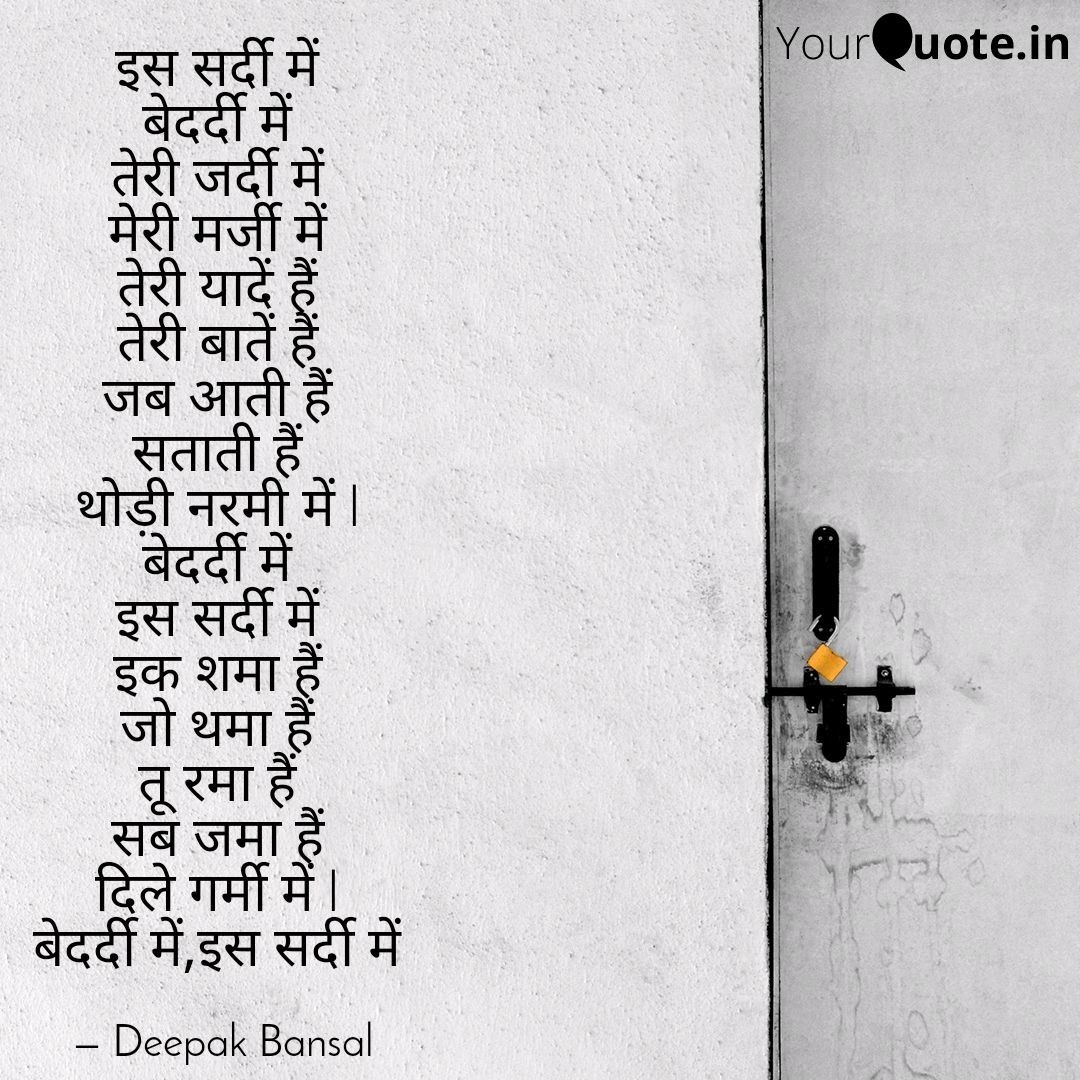 YourQuote.in
इस सर्दी में
बेदर्दी में
तेरी जर्दी में
मेरी मर्जी में
तेरी यादें हैं
तेरी बातें हैं
जब आती हैं
सताती हैं
थोड़ी नरमी में |
बेदर्दी में
इस सर्दी में
इक शमा हैं
जो थमा हैं
तू रमा हैं
सब जमा हैं
दिले गर्मी में |
बेदर्दी में,इस सर्दी में
– Deepak Bansal